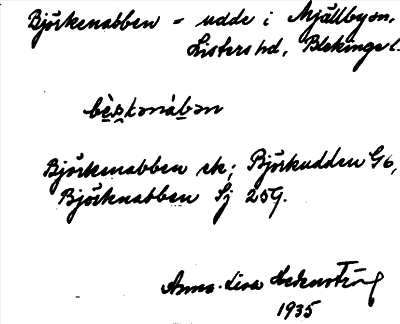 Björkenabben - udde i Mjällbyson,
Listers hd, Blekinge l.
Björkenabben ek; Björkudden G6,
Björknabben Sj 259.
Anna-Lisa
1935